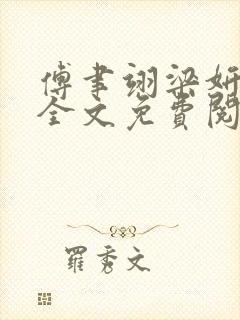 傅聿翊梁妍
全文免費閱
羅秀文